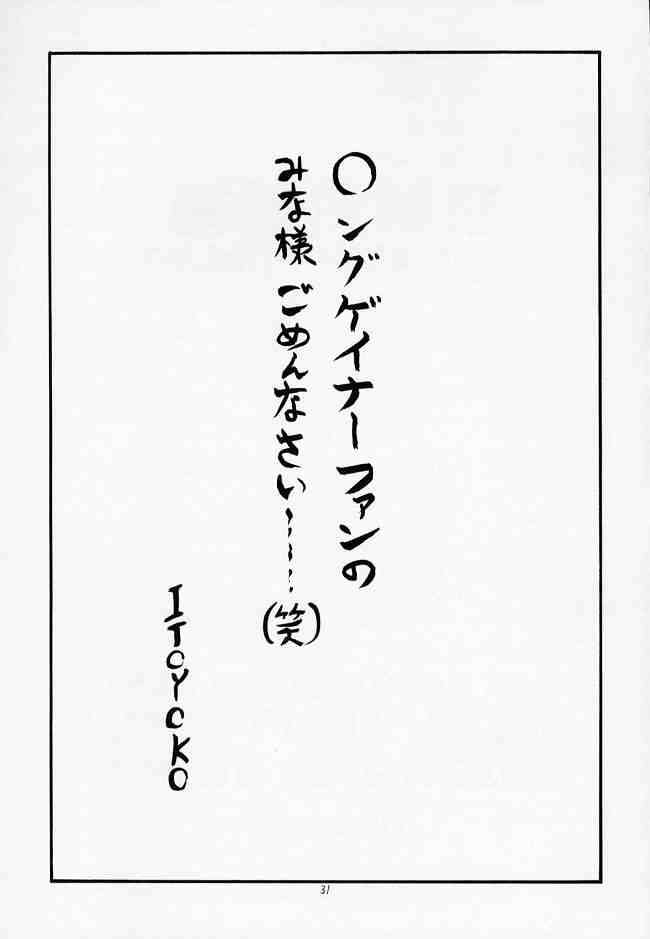 〇ングゲイナーファンの
みな様 ごめんなさい……(笑)
ITOYOKO
31